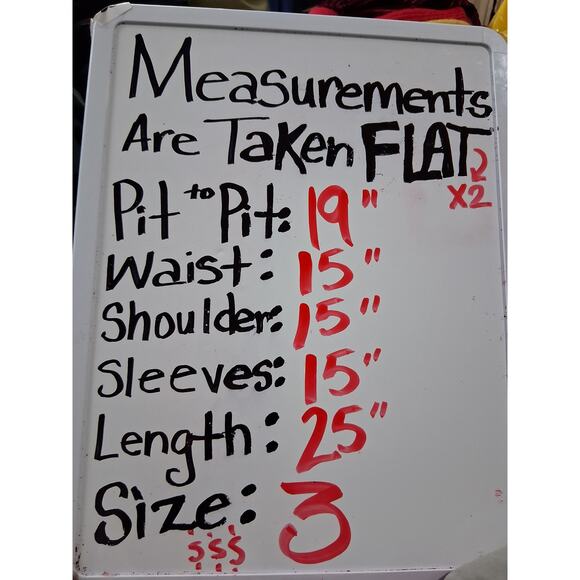 Measurements
Are Taken FLAT
X2
Pit to Pit: 19"
Waist: 15"
Shoulder: 15"
Sleeves: 15"
Length: 25"
Size: 3
$$$